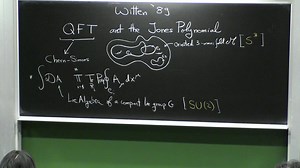 Witten '89
QFT and the Jones Polynomial
oriented 3-manifold [S³]
Chern-Simons
∫ DA
Lie Algebra of a compact Lie group G [SU(2)]